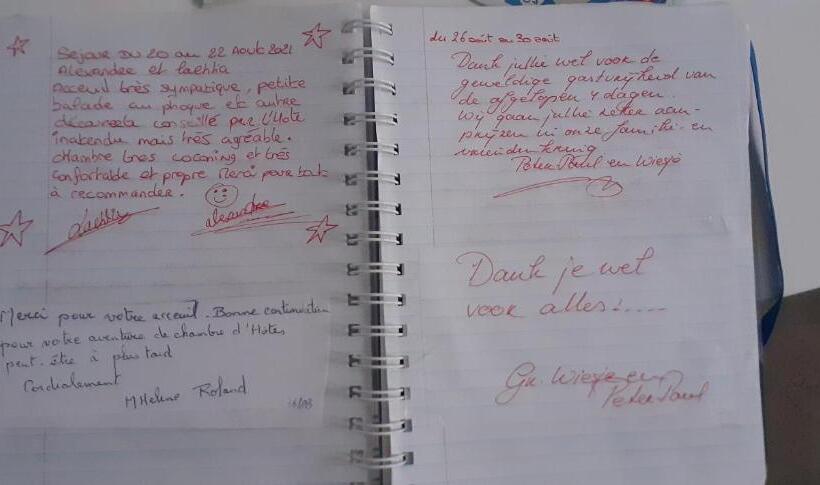 Sejour DU 20 au 22 Aout 2021
Alexandre et Laetitia
Acceuil très sympatique, petite
balade au phoque et autre
conseillé par l'Hote
inatendu mais très agréable.
chambre très cocooning et très
confortable et propre Merci pour tout
à recommander.
Laetitia alexandre
Merci pour votre acceuil. Bonne continuation
pour votre aventure de chambre d'Hotes
peut-être à plus tard
Cordialement
MHélène Roland
du 26 août au 30 août
Dank jullie wel voor de
geweldige gastvrijheid van
de afgelopen 4 dagen.
Wij gaan jullie zeker aan-
prijzen in onze familie- en
vriendenkring
Peter Paul en Wiesje
Dank je wel
voor alles!.....
Gr. Wiesje en
Peter Paul